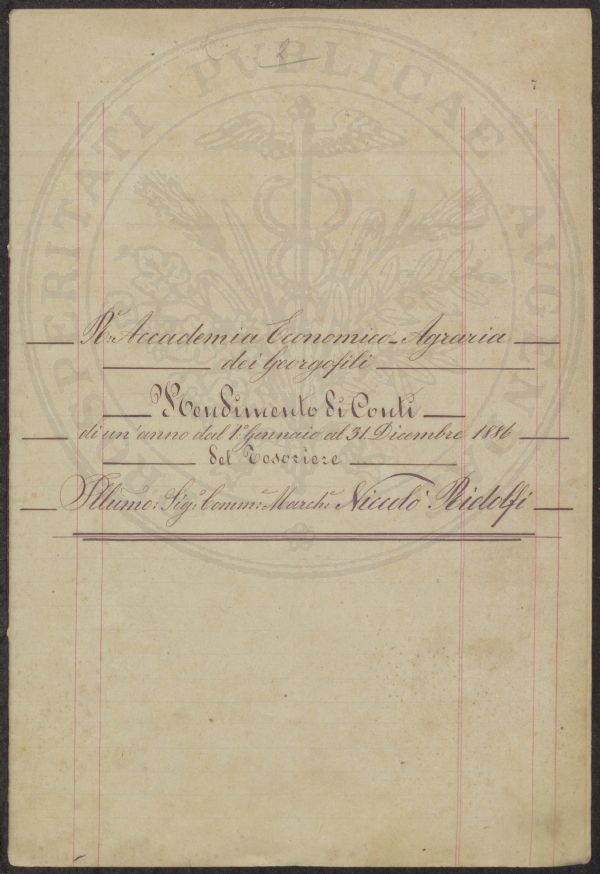 2
R. Accademia Economico-Agraria
dei Georgofili
Rendimento di Conti
di un'anno dal 1° Gennaio al 31 Dicembre 1886
del Tesoriere
Illumo: Sigr. Comm: March: Niccolò Ridolfi
PROSPERITATI PUBLICAE AUGENDAE